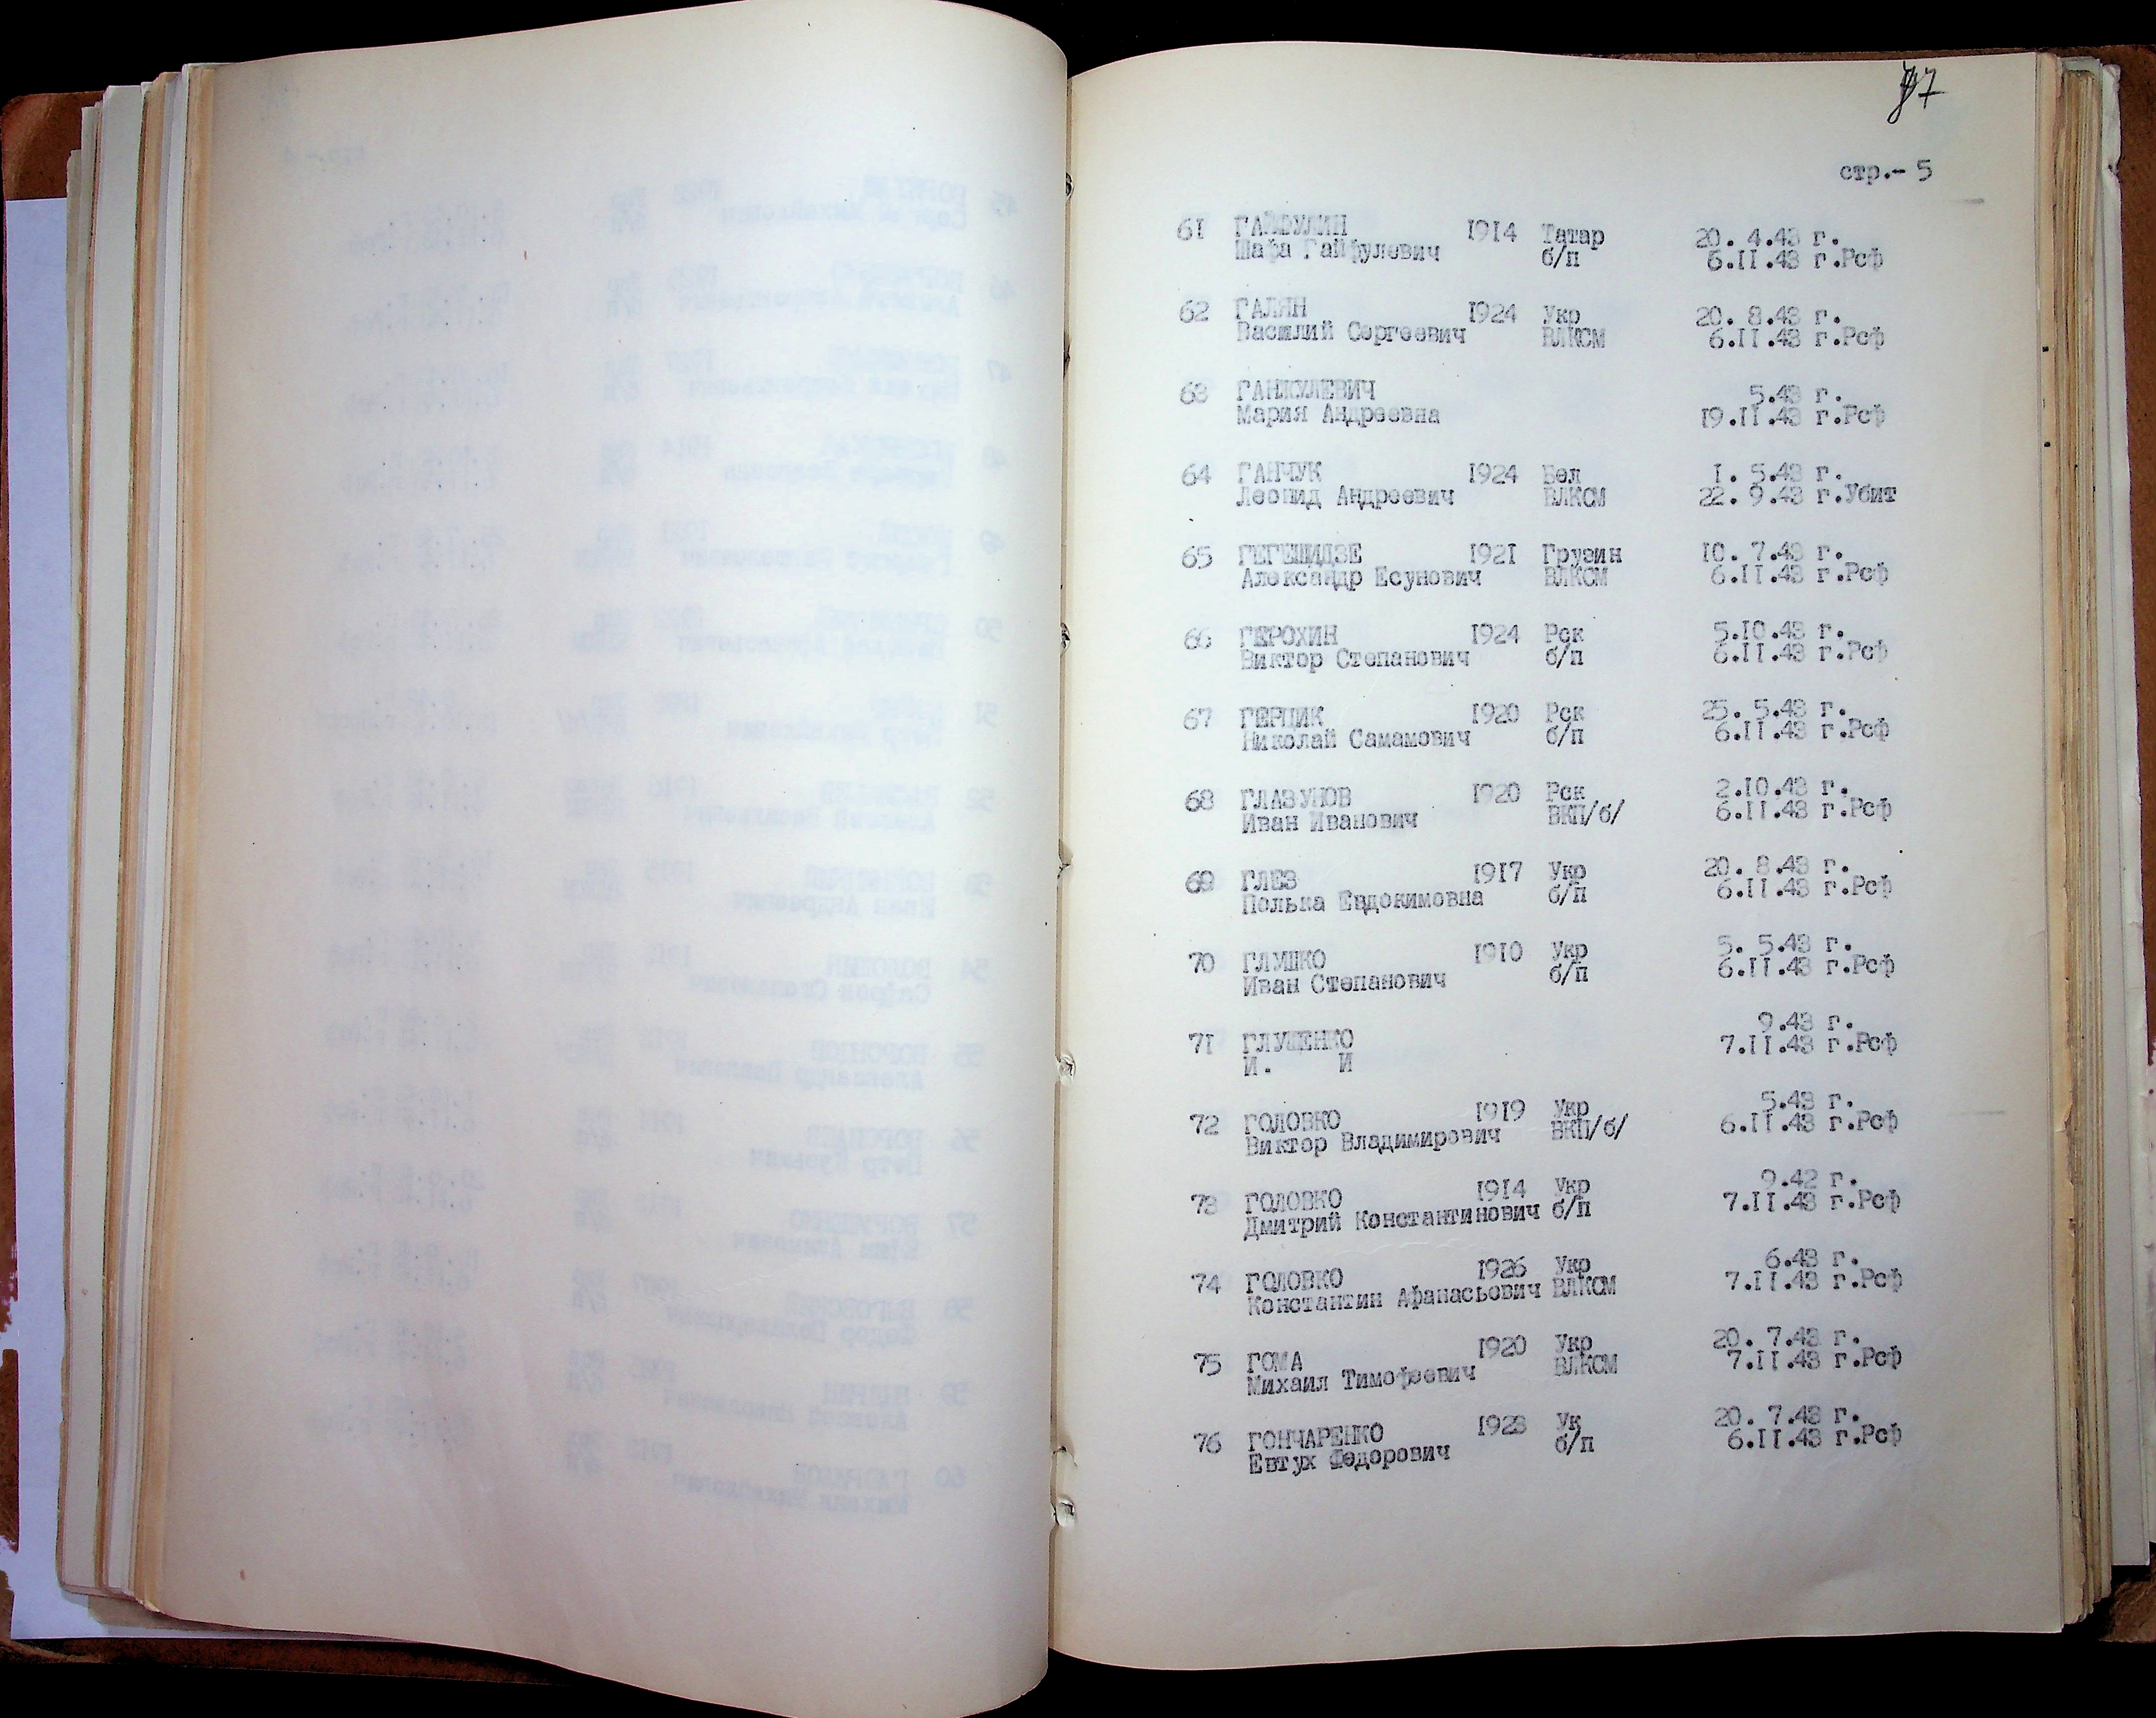 стр.- 5
61 ГАЙФУЛИН 1914 Татар 20. 4.43 г.
Шафа Гайфулевич б/п 6.II.43 г.Рсф
62 ГАЛЯН 1924 Укр 20. 8.43 г.
Василий Сергеевич ВЛКСМ 6.II.43 г.Рсф
63 ГАНЖУЛЕВИЧ 5.43 г.
Мария Андреевна 19.II.43 г.Рсф
64 ГАНЧУК 1924 Бел I. 5.43 г.
Леонид Андреевич ВЛКСМ 22. 9.43 г.Убит
65 ГЕГЕШИДЗЕ 1921 Грузин 10. 7.43 г.
Александр Есунович ВЛКСМ 6.II.43 г.Рсф
66 ГЕРОХИН 1924 Рск 5.10.43 г.
Виктор Степанович б/п 6.II.43 г.Рсф
67 ГЕРЦИК 1920 Рск 25. 5.43 г.
Николай Самамович б/п 6.II.43 г.Рсф
68 ГЛАЗУНОВ 1920 Рск 2.10.43 г.
Иван Иванович ВКП/б/ 6.II.43 г.Рсф
69 ГЛЕЗ 1917 Укр 20. 8.43 г.
Полька Евдокимовна б/п 6.II.43 г.Рсф
70 ГЛУШКО 1910 Укр 5. 5.43 г.
Иван Степанович б/п 6.II.43 г.Рсф
71 ГЛУЩЕНКО 9.43 г.
И. И 7.II.43 г.Рсф
72 ГОЛОВКО 1919 Укр 5.43 г.
Виктор Владимирович ВКП/б/ 6.II.43 г.Рсф
73 ГОЛОВКО 1914 Укр 9.42 г.
Дмитрий Константинович б/п 7.II.43 г.Рсф
74 ГОЛОВКО 1926 Укр 6.43 г.
Константин Афанасьович ВЛКСМ 7.II.43 г.Рсф
75 ГОМА 1920 Укр 20. 7.43 г.
Михаил Тимофеевич ВЛКСМ 7.II.43 г.Рсф
76 ГОНЧАРЕНКО 1923 Ук 20. 7.43 г.
Евтух Федорович б/п 6.II.43 г.Рсф